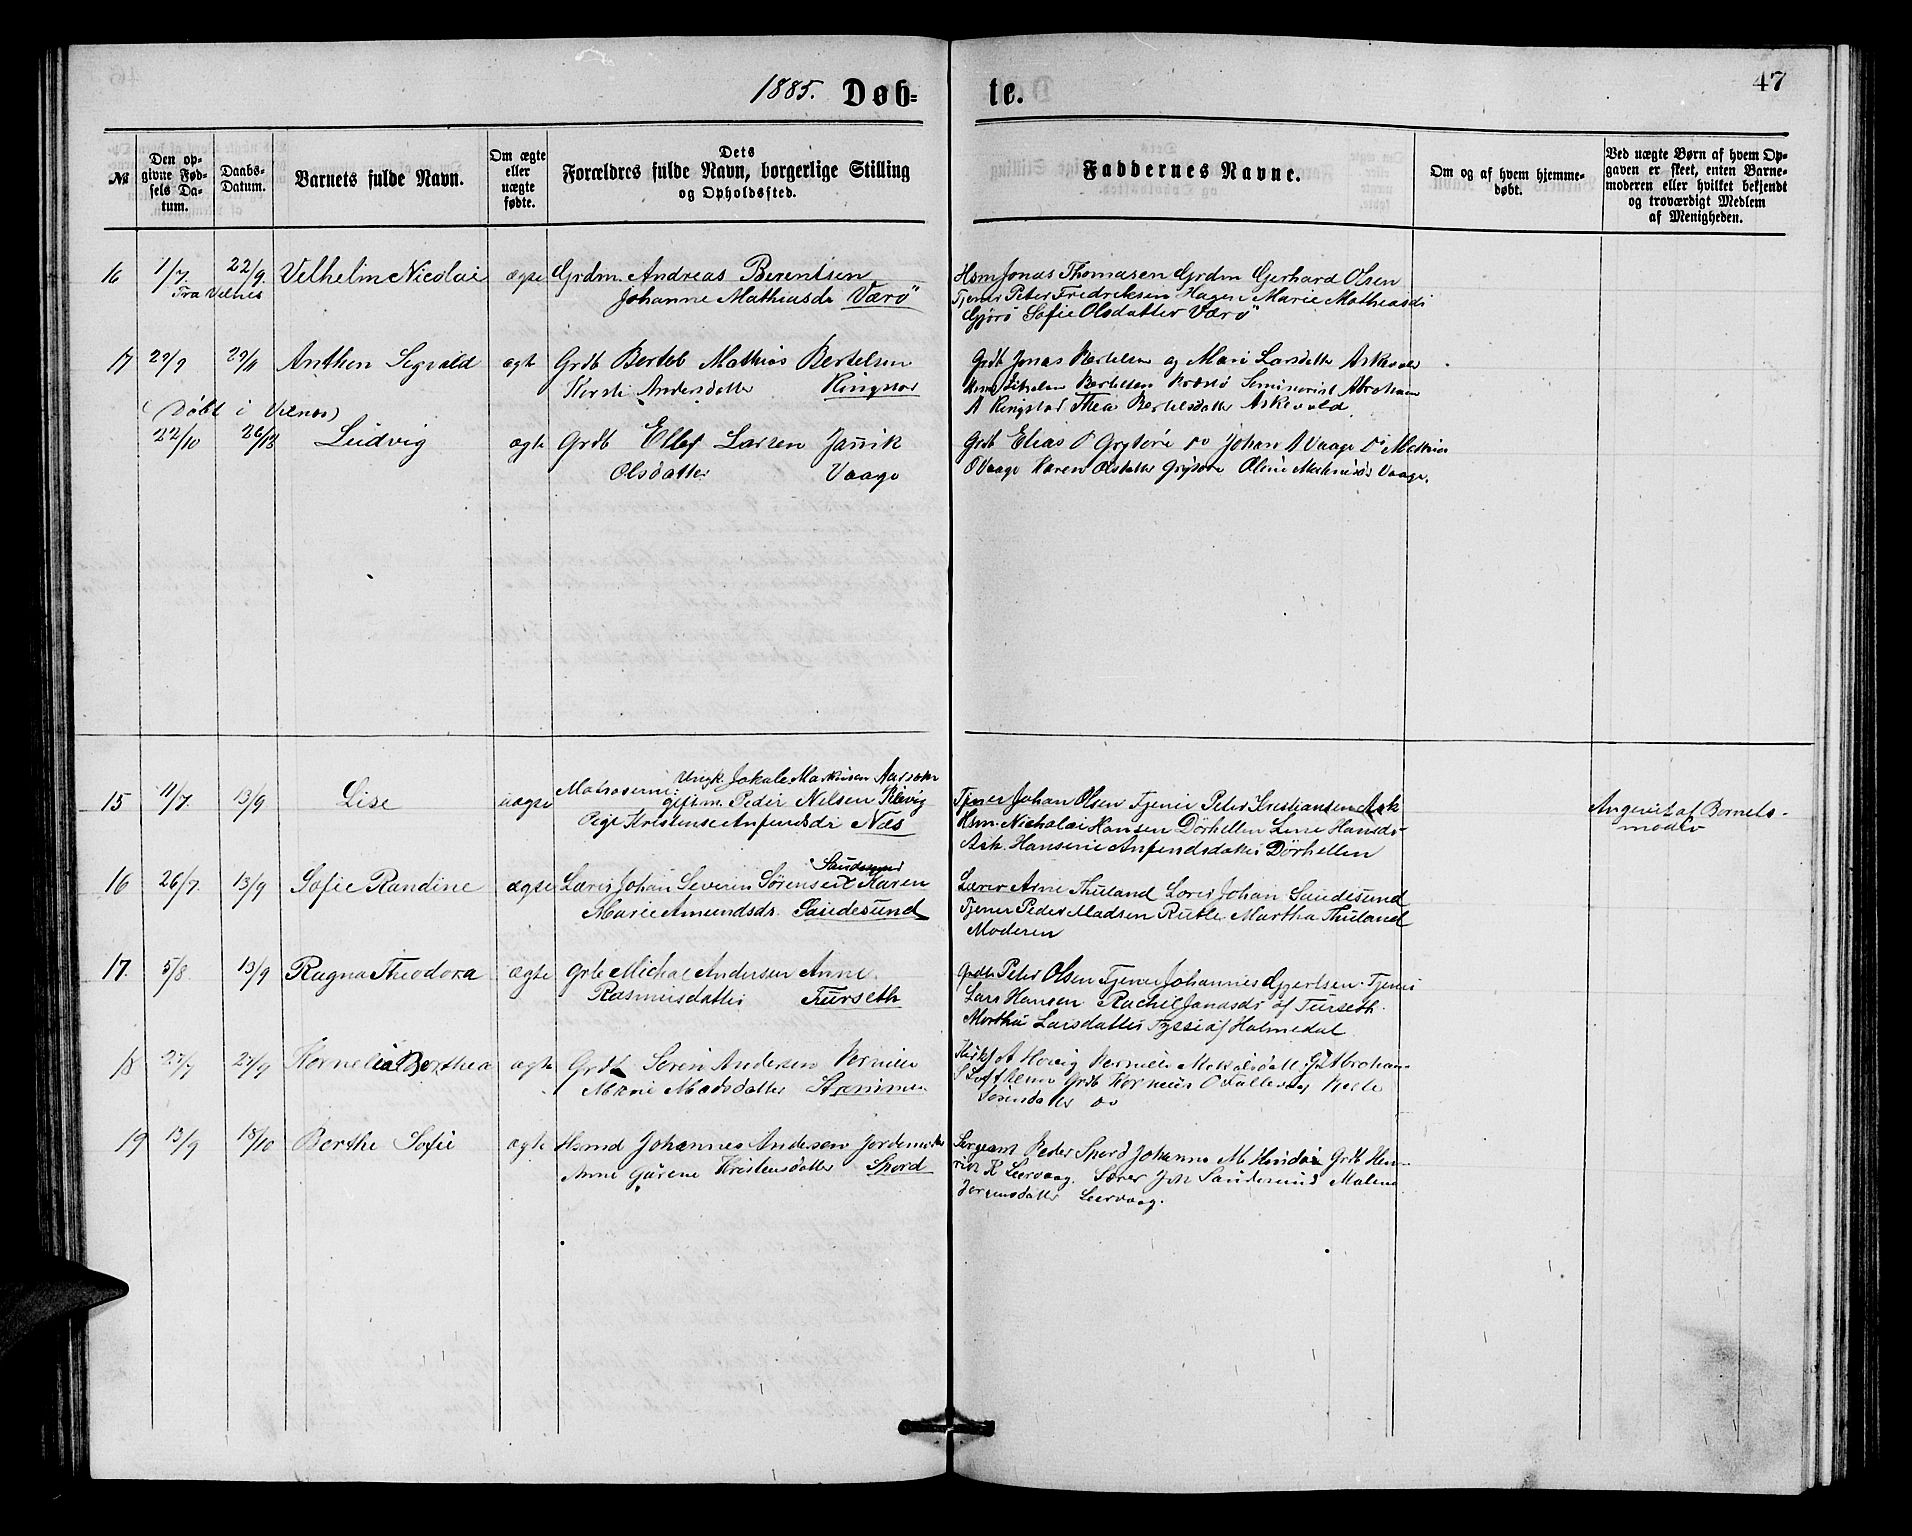 47
1885. Døb=te.
№
Den opgivne Fødsels Datum.
Daabs-Datum.
Barnets fulde Navn.
Om ægte eller uægte fødte.
Dets Forældres fulde Navn, borgerlige Stilling og Opholdssted.
Faddernes Navne.
Om og af hvem hjemmedøbt.
Ved uægte Børn af hvem Opgaven er skeet, enten Barnemoderen eller hvilket bekjendt og troværdigt Medlem af Menigheden.
16 1/7. 22/9. Velhelm Nicolai ægte Grdm. Andreas Berentsen
Fra Vilnes Johanne Mathiasdr Værö
Hsm Jonas Thomasen Grdm Gerhard Olsen
Tjener Peter Fredriksen Hagen Marie Mathiasdr
Sofie Olsdatter Værö
17 29/9 29/11 Anthon Sigvald ægte Grdb Bertel Mathias Bertelsen
Kersti Andersdatter Ringstad
Grdb Jonas Bertelsen og Mari Larsdatter Askevold
Bertelsen Seminarist Abraham
A Ringstad Thea Bertelsdatter Askevold.
(Döbt i Vilnæs)
22/10 26/12 Ludvig ægte Grdb Ellef Larsen Janik
Olsdatter Vaage
Grdb Elias O Grytöre do Johan A Vaage do Mathias
O Vaage Karen Olsdatter Grytöre Oline Vaage.
15 11/7. 13/9 Lise uægte Matroserne: Ungk. Jokale Markusen
giftm. Peder Nelsen
Pige Kristense Anfindsdr Næs
Tjener Johan Olsen Tjener Peter Kristiansen Ask
Hsm. Nicholai Hansen Dörhellen Line Hansdr
Ask. Hansine Anfindsdatter Dörhellen
Angivet af Barnets
moder
16 26/7. 13/9 Sofie Randine ægte Lærer Johan Severin Sörensen Sandesund Karen
Marie Amundsdr. Sandesund
Lærer Arne Thuland Lærer Johan Sandesund
Tjener Peder Madsen Rutle Martha Thuland
Moderen
17. 5/8 13/9 Ragna Theodora ægte Grb Michal Andersen Anne
Rasmusdatter Turseth
Grdb Peter Olsen Tjener Johannes Gjertsen Tjener
Lars Hansen Rachel Janasdr af Turseth
Martha Larsdatter Tyssi af Holmedal
18 27/7 27/9 Kornelia Berthea ægte Grdb Sören Andersen Pernille
Marie Madsdatter Strømmen
Kirks A Hovig Pernille Gdb Abraham
S Loftheim Grdb Kornelius O
Sörensdatter do
19 13/9 18/10 Berthe Sofie ægte Hsmd Johannes Andersen Jordemoder
Anne Gurene Kristensdatter Spord
Sergeant Peder Spord Johanne M Hindø Grdb Henrik
R Leervaag. Lærer Joh Sandesund Malene
Jörgensdatter Leervaag.